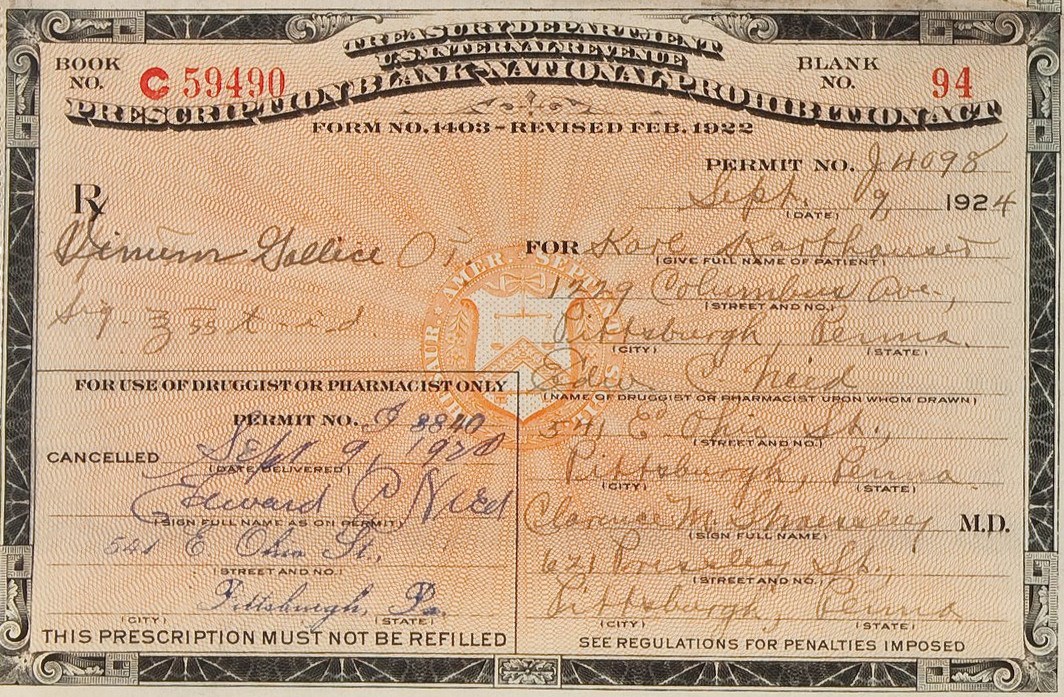 TREASURY DEPARTMENT
U.S. INTERNAL REVENUE
PRESCRIPTION BLANK-NATIONAL PROHIBITION ACT
BOOK NO. C 59490
BLANK NO. 94
FORM NO. 1403-REVISED FEB. 1922
PERMIT NO. J 4098
Sept. 9, 1924
(DATE)
Rx
FOR Karl Karthauser
(GIVE FULL NAME OF PATIENT)
Vinum Gallice
1229 Columbus Ave.,
(STREET AND NO.)
Sig. ʒ ss t-i-d
Pittsburgh, Penna.
(CITY) (STATE)
Edw C Nied
(NAME OF DRUGGIST OR PHARMACIST UPON WHOM DRAWN)
541 E. Ohio St.,
(STREET AND NO.)
Pittsburgh, Penna.
(CITY) (STATE)
Clarence M. M.D.
(SIGN FULL NAME)
621 St.,
(STREET AND NO.)
Pittsburgh, Penna.
(CITY) (STATE)
SEE REGULATIONS FOR PENALTIES IMPOSED
FOR USE OF DRUGGIST OR PHARMACIST ONLY
PERMIT NO. 8840
CANCELLED Sept 9, 192
(DATE DELIVERED)
Edward C Nied
(SIGN FULL NAME AS ON PERMIT)
541 E Ohio St.
(STREET AND NO.)
Pittsburgh, Pa.
(CITY) (STATE)
THIS PRESCRIPTION MUST NOT BE REFILLED